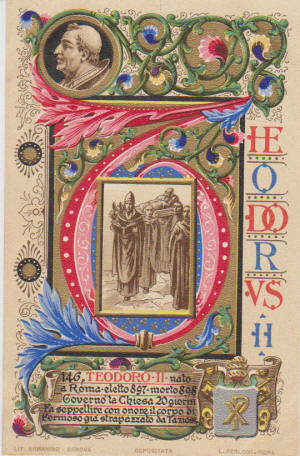 THEODORVS II
116, TEODORO·II·nato
a Roma·eletto 897·morto 898
Governò la Chiesa 20 giorni
Fa seppellire con onore il corpo di
Formoso già strapazzato da
LIT. ARMANINO - GENOVA
DEPOSITATA
L. PERLOSI - ROMA